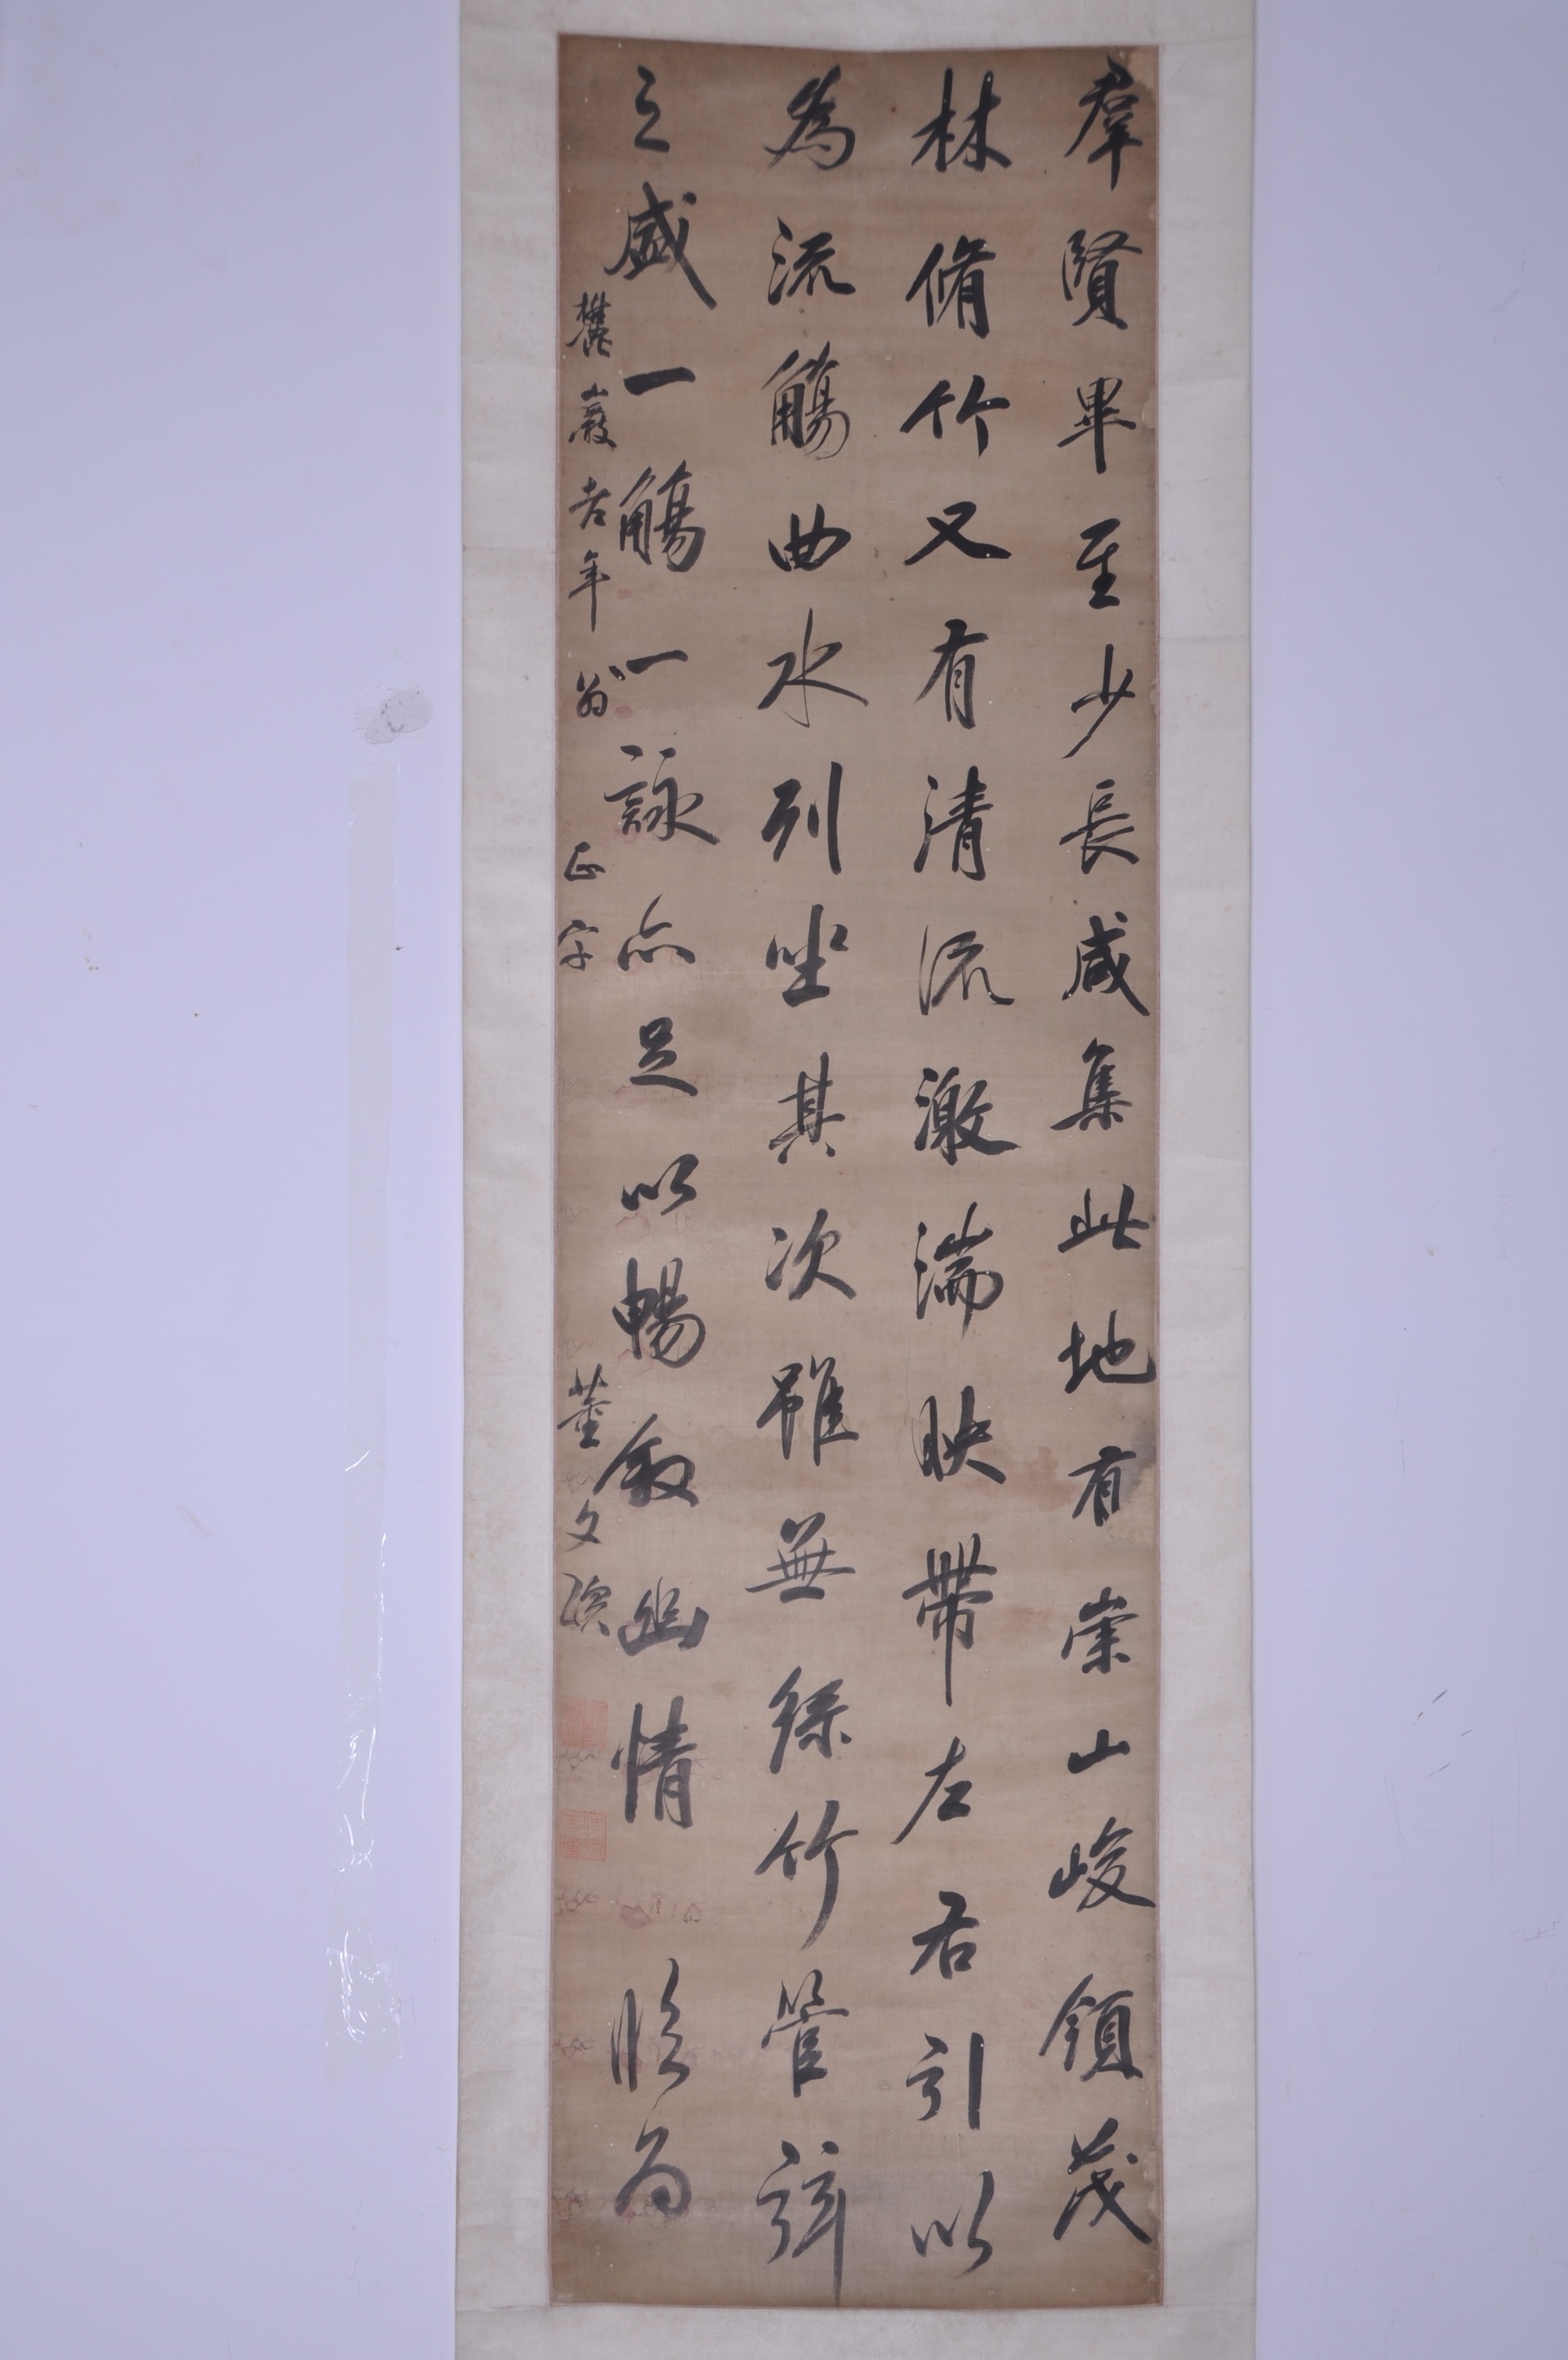 羣賢畢至少長咸集此地有崇山峻領茂
林脩竹又有清流激湍映帶左右引以
為流觴曲水列坐其次雖無絲竹管弦
之盛一觴一詠亦足以暢敘幽情 臨為
巖老年翁 正字 董文